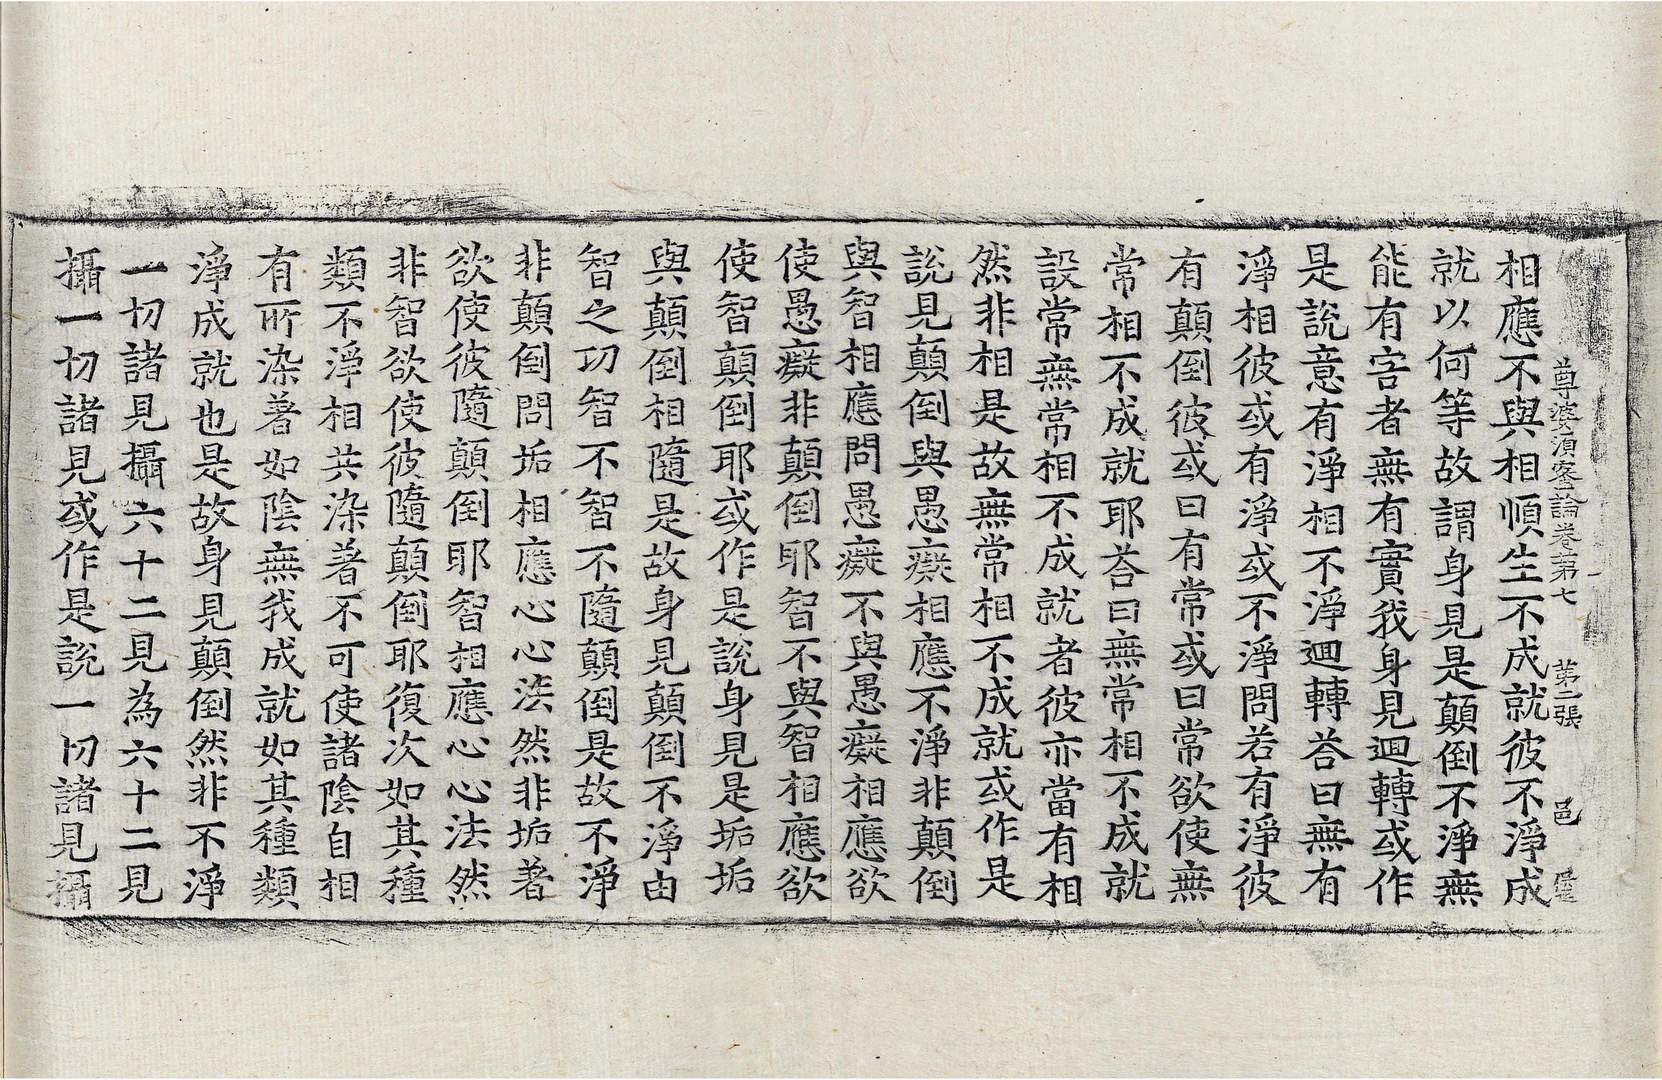 尊婆湏蜜論卷第七　第二張　邑
相應不與相順生不成就彼不淨成
就以何等故謂身見是顛倒不淨無
能有害者無有實我身見迴轉或作
是說意有淨相不淨迴轉荅曰無有
淨相彼或有淨或不淨問若有淨彼
有顛倒彼或曰有常或曰常欲使無
常相不成就耶荅曰無常相不成就
設常無常相不成就者彼亦當有相
然非相是故無常相不成就或作是
說見顛倒與愚癡相應不淨非顛倒
與智相應問愚癡不與愚癡相應欲
使愚癡非顛倒耶智不與智相應欲
使智顛倒耶或作是說身見是垢垢
與顛倒相隨是故身見顛倒不淨由
智之功智不智不隨顛倒是故不淨
非顛倒問垢相應心心法然非垢著
欲使彼隨顛倒耶智相應心心法然
非智欲使彼隨顛倒耶復次如其種
類不淨相共染著不可使諸陰自相
有所染著如陰無我成就如其種類
淨成就也是故身見顛倒然非不淨
一切諸見攝六十二見為六十二見
攝一切諸見或作是說一切諸見攝